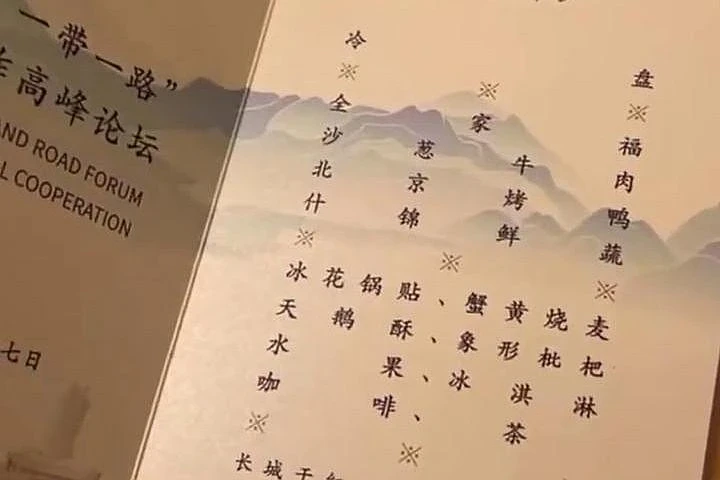 一带一路”
高峰论坛
AND ROAD FORUM
L COOPERATION
七日
冷盘
※ ※ ※
全家福
沙葱牛肉
北京烤鸭
什锦鲜蔬
※ ※ ※
冰花锅贴、蟹黄烧麦
天鹅酥、象形枇杷
水果、冰淇淋
咖啡、茶
※ ※
长城干红